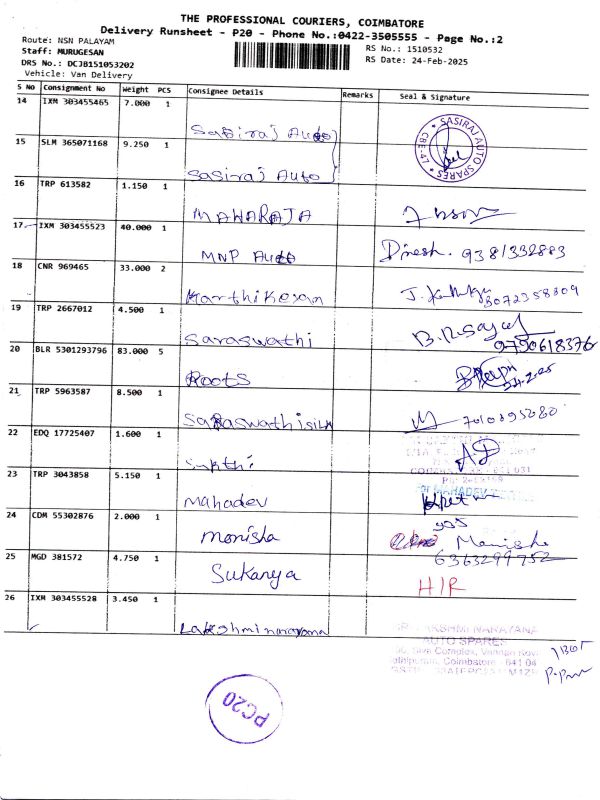 THE PROFESSIONAL COURIERS, COIMBATORE
Delivery Runsheet - P20 - Phone No.:0422-3505555 - Page No.:2
Route: NSN PALAYAM RS No.: 1510532
Staff: MURUGESAN RS Date: 24-Feb-2025
DRS No.: DCJB151053202
Vehicle: Van Delivery
S No Consignment No Weight PCS Consignee Details Remarks Seal & Signature
14 IXM 303455465 7.000 1 Sasiraj Auto
15 SLM 365071168 9.250 1 Sasiraj Auto SASIRAJ AUTO SPARES CBE-47
16 TRP 613582 1.150 1 MAHARAJA
17 IXM 303455523 40.000 1 MNP Auto Dinesh. 9381332883
18 CNR 969465 33.000 2 Karthikeyan 8072358309
19 TRP 2667012 4.500 1 Saraswathi 9790618376
20 BLR 5301293796 83.000 5 Roots
21 TRP 5963587 8.500 1 Saraswathi silk
22 EDQ 17725407 1.600 1
23 TRP 3043858 5.150 1 Mahadev
24 CDM 55302876 2.000 1 Monisha 6363299752
25 MGD 381572 4.750 1 Sukanya H/R
26 IXM 303455528 3.450 1 Lakshminarayana
SRI LAKSHMI NARAYANA
AUTO SPARES
PC20